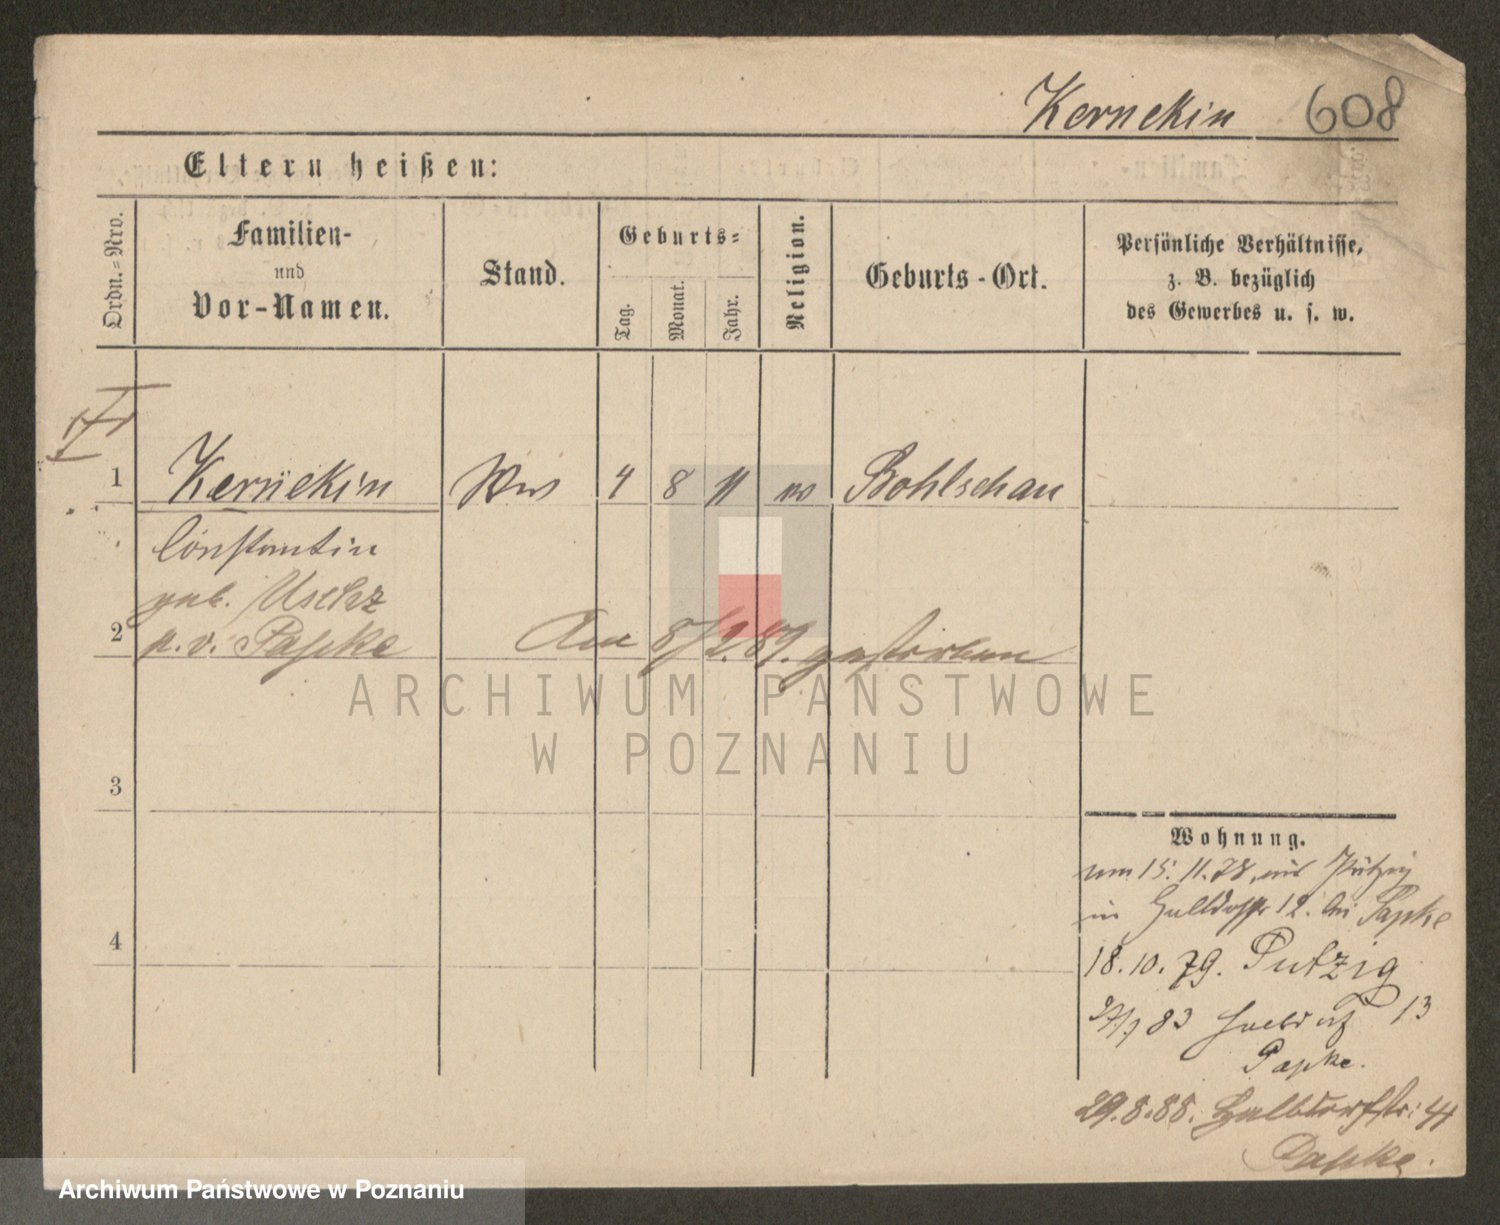 Kernekin 608
Eltern heißen:
Ordn.-Nro.
Familien-
und
Vor-Namen.
Stand.
Geburts-
Tag.
Monat.
Jahr.
Religion.
Geburts-Ort.
Persönliche Verhältnisse,
z. B. bezüglich
des Gewerbes u. s. w.
1 Kernekin Ww 4 8 11 Bohlschau
Constantin
geb.
2 n. v. Papke Am 8/2.89. gestorben
3
4
Wohnung.
15. 11. 78. Putzig
in Halbdorfstr 12. bei Papke
18. 10. 79. Putzig
83 13
Papke.
29. 8. 88. Halbdorfstr: 4
Papke.
ARCHIWUM PAŃSTWOWE
W POZNANIU
Archiwum Państwowe w Poznaniu